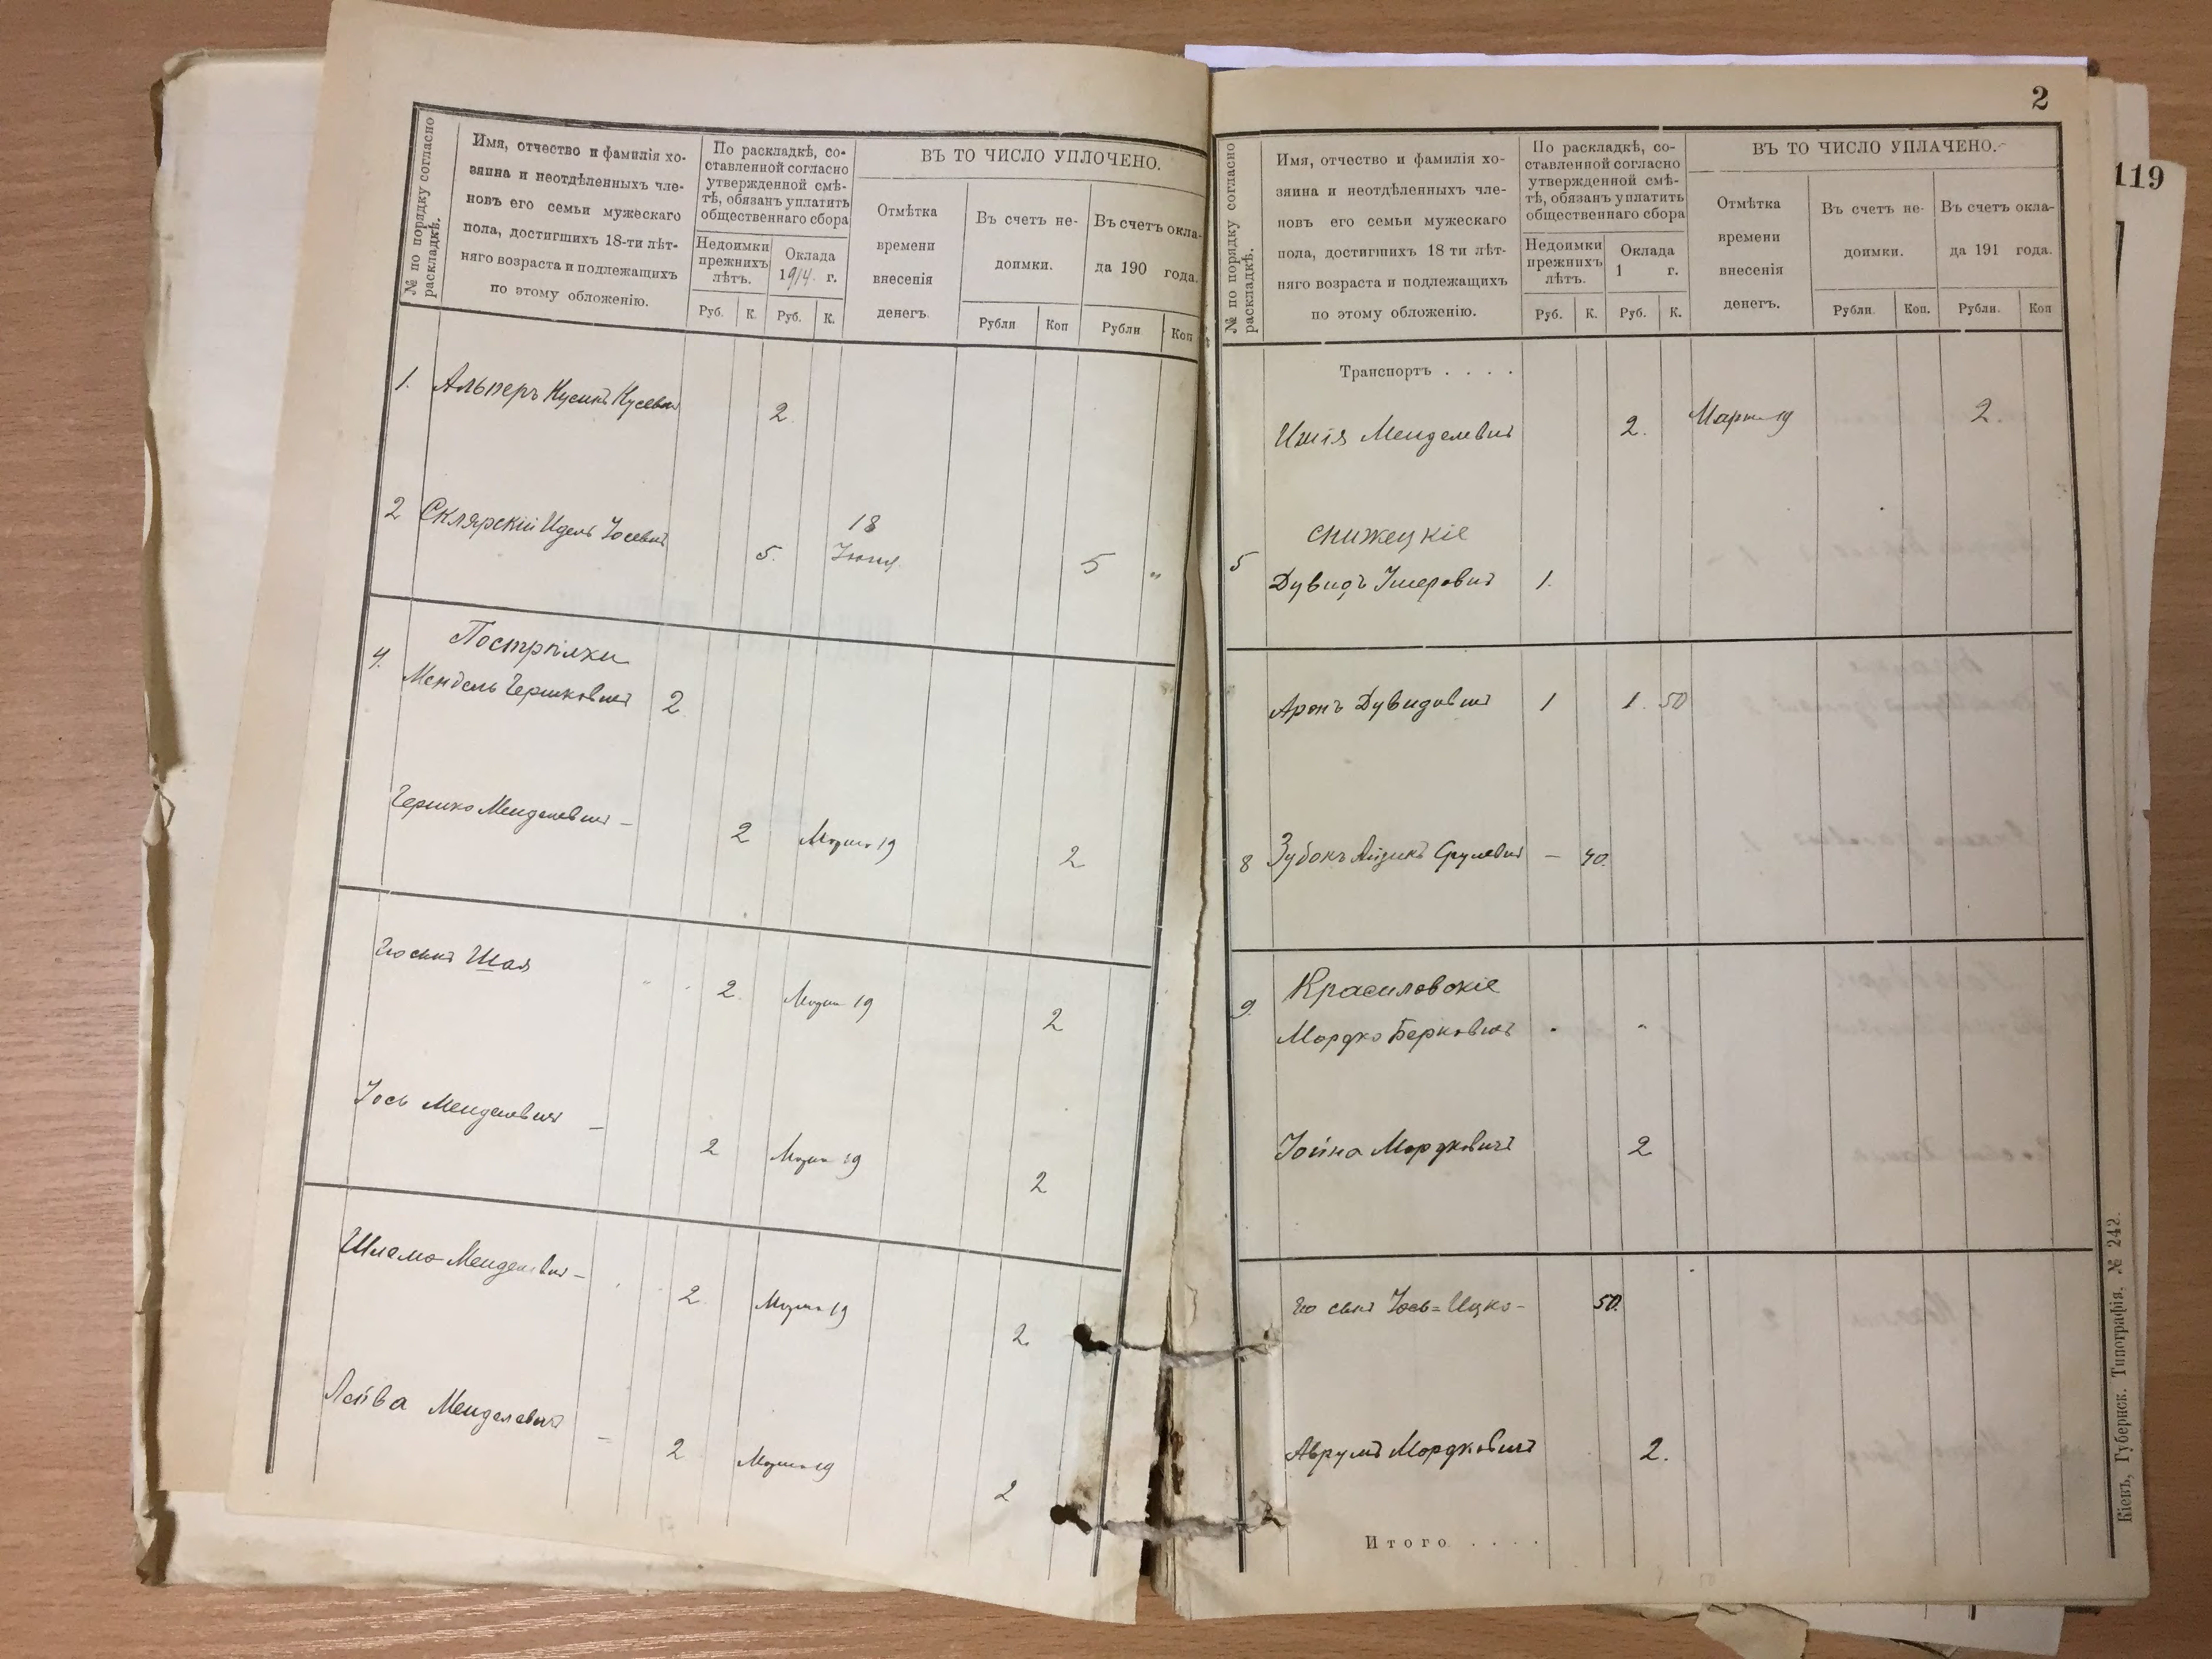 № по порядку согласно
раскладкѣ.
Имя, отчество и фамилія хо-
зяина и неотдѣленныхъ чле-
новъ его семьи мужескаго
пола, достигшихъ 18-ти лѣт-
няго возраста и подлежащихъ
по этому обложенію.
По раскладкѣ, со-
ставленной согласно
утвержденной смѣ-
тѣ, обязанъ уплатить
общественнаго сбора
Недоимки
прежнихъ
лѣтъ.
Оклада
1914 г.
Руб. К. Руб. К.
ВЪ ТО ЧИСЛО УПЛОЧЕНО.
Отмѣтка
времени
внесенія
денегъ.
Въ счетъ не-
доимки.
Въ счетъ окла-
да 190 года.
Рубли Коп Рубли Коп
1. Альперъ Кусикъ Кусевич 2.
2 Склярскій Идель Іосевичъ 5. 18 Іюня 5 "
4. Пострілки
Мендель Гершковичъ 2
Гершко Менделевичъ - 2 Марта 19 2
Его сынъ Шая 2 Марта 19 2
Іось Менделевичъ - 2 Марта 19 2
Шлема Менделевич - 2 Марта 19 2
Лейва Менделевичъ - 2 Марта 19 2
2
№ по порядку согласно
раскладкѣ.
Имя, отчество и фамилія хо-
зяина и неотдѣленныхъ чле-
новъ его семьи мужескаго
пола, достигшихъ 18 ти лѣт-
няго возраста и подлежащихъ
по этому обложенію.
По раскладкѣ, со-
ставленной согласно
утвержденной смѣ-
тѣ, обязанъ уплатить
общественнаго сбора
Недоимки
прежнихъ
лѣтъ.
Оклада
1 г.
Руб. К. Руб. К.
ВЪ ТО ЧИСЛО УПЛАЧЕНО.
Отмѣтка
времени
внесенія
денегъ.
Въ счетъ не-
доимки.
Въ счетъ окла-
да 191 года.
Рубли. Коп. Рубли. Коп
Транспортъ . . . .
Менделевичъ 2. Марта 19 2.
Снижецкіе
5 Дувидъ Ішеровичъ 1.
Аронъ Дувидовичъ 1 1. 50
8 Зубокъ Айзикъ Срулевичъ — 40.
9. Красиловскіе
Мордко Берковичъ
Іойна Мордковичъ 2
Его сынъ Іось=Ицко - 50.
Аврумъ Мордковичъ 2.
Итого . . . .
Кіевъ, Губернск. Типографія. № 242.
119